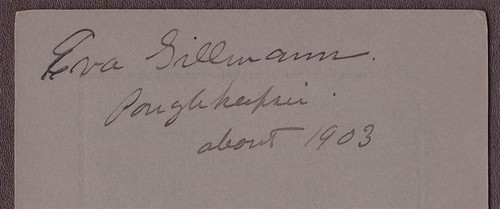 Eva Gillmann.
Poughkeepsie.
about 1903